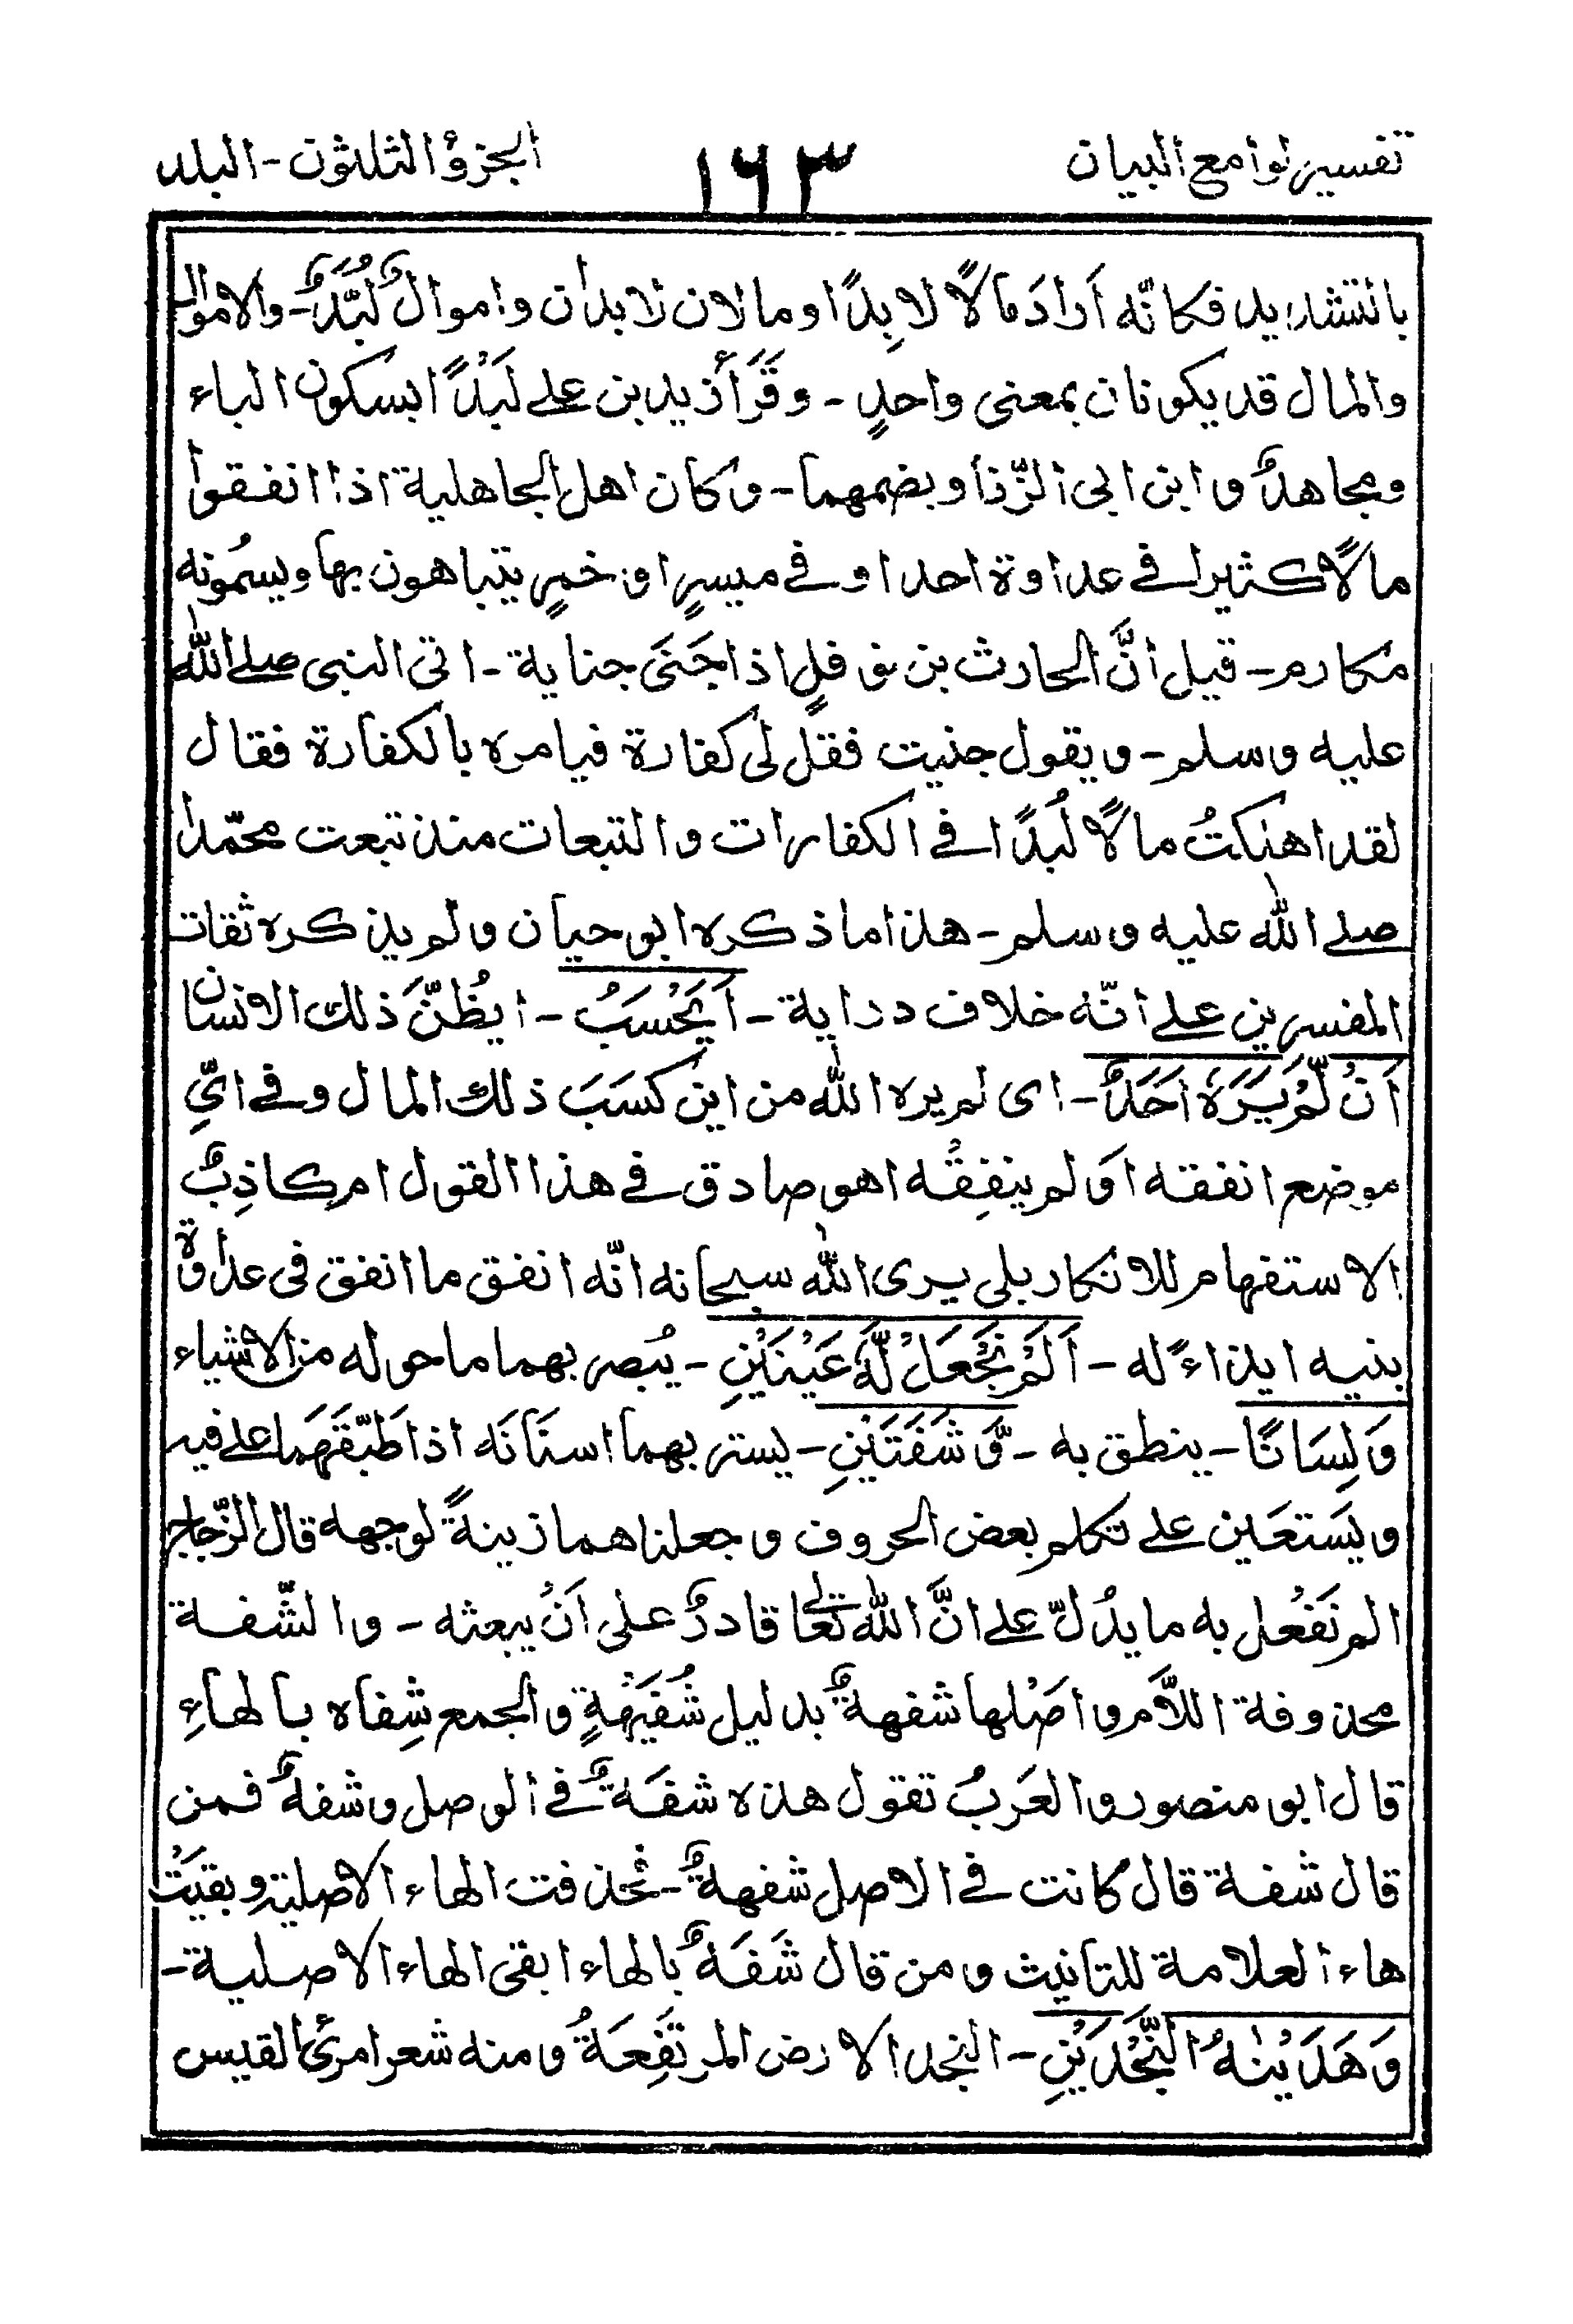 تفسير لوامع البيان ١٦٣ الجزؤ الثلثون - البلد
بالتشديد فكانّه أرادَ مالًا لابِدًا ومالان لابدان واموالٌ لُبَّدٌ - والاموال
والمال قد يكونان بمعنى واحدٍ - وقَرَأ زيد بن علے لَبْدًا بسكون الباء
ومجاهدٌ وابن ابى الزّناد بضمهما - وكان اهل الجاهلية اذا انفقوا
مالًا كثيرا فے عداوة احد او فے ميسرٍ او خمرٍ يتباهون بها ويسمُونه
مكارم - قيل انَّ الحارث بن نوفلٍ اذا جَنَى جناية - اتى النبى صلے الله
عليه وسلم - ويقول جنيت فقل لى كفارة فيامره بالكفارة فقال
لقد اهلكتُ مالًا لُبدًا فے الكفارات والتبعات منذ تبعت محمّدا
صلے الله عليه وسلم - هذا ما ذكره ابو حيان ولم يذكره ثقات
المفسرين علے انّه خلاف دراية - اَيَحْسَبُ - ايظُنّ ذلك الانسان
اَنْ لَّمْ يَرَهٗ اَحَدٌ - اى لم يره الله من اين كسَبَ ذلك المال وفے ايّ
موضع انفقه اَو لم ينفِقْه اهو صادق فے هذا القول ام كاذِبٌ
الاستفهام للانكار بلى يرى الله سبحانه انّه انفق ما انفق فى عداوة
بنيه ايذاءً له - اَلَمْ نَجْعَلْ لَّهٗ عَيْنَيْنِ - يُبصر بهما ما حوله من الاشياء
وَلِسَانًا - ينطق به - وَّشَفَتَيْنِ - يستر بهما اسنَانَه اذا طَبّقَهُمَا علے فيه
ويَستعَين علے تكلم بعض الحروف وجعلناهما زينةً لوجهه قال الزّجاج
الم نَفْعل به ما يدُلّ علے انَّ الله تعالى قادرٌ على اَنْ يبعثه - والشّفة
محذوفة اللّام واصْلها شفهةٌ بدليل شُفَيْهَةٍ والجمع شِفاه بالهاءِ
قال ابو منصور والعَربُ تقول هذه شفَةٌ فے الوصل وشفهٌ فمن
قال شفة قال كانت فے الاصل شفهةٌ - فحُذفت الهاء الاصلية وبقيَتْ
هاء العلامة للتانيث ومن قال شَفَهٌ بالهاء ابقى الهاء الاصلية -
وَهَدَيْنٰهُ النَّجْدَيْنِ - النجد الارض المرتَفِعَةُ ومنه شعر امرئ القيس